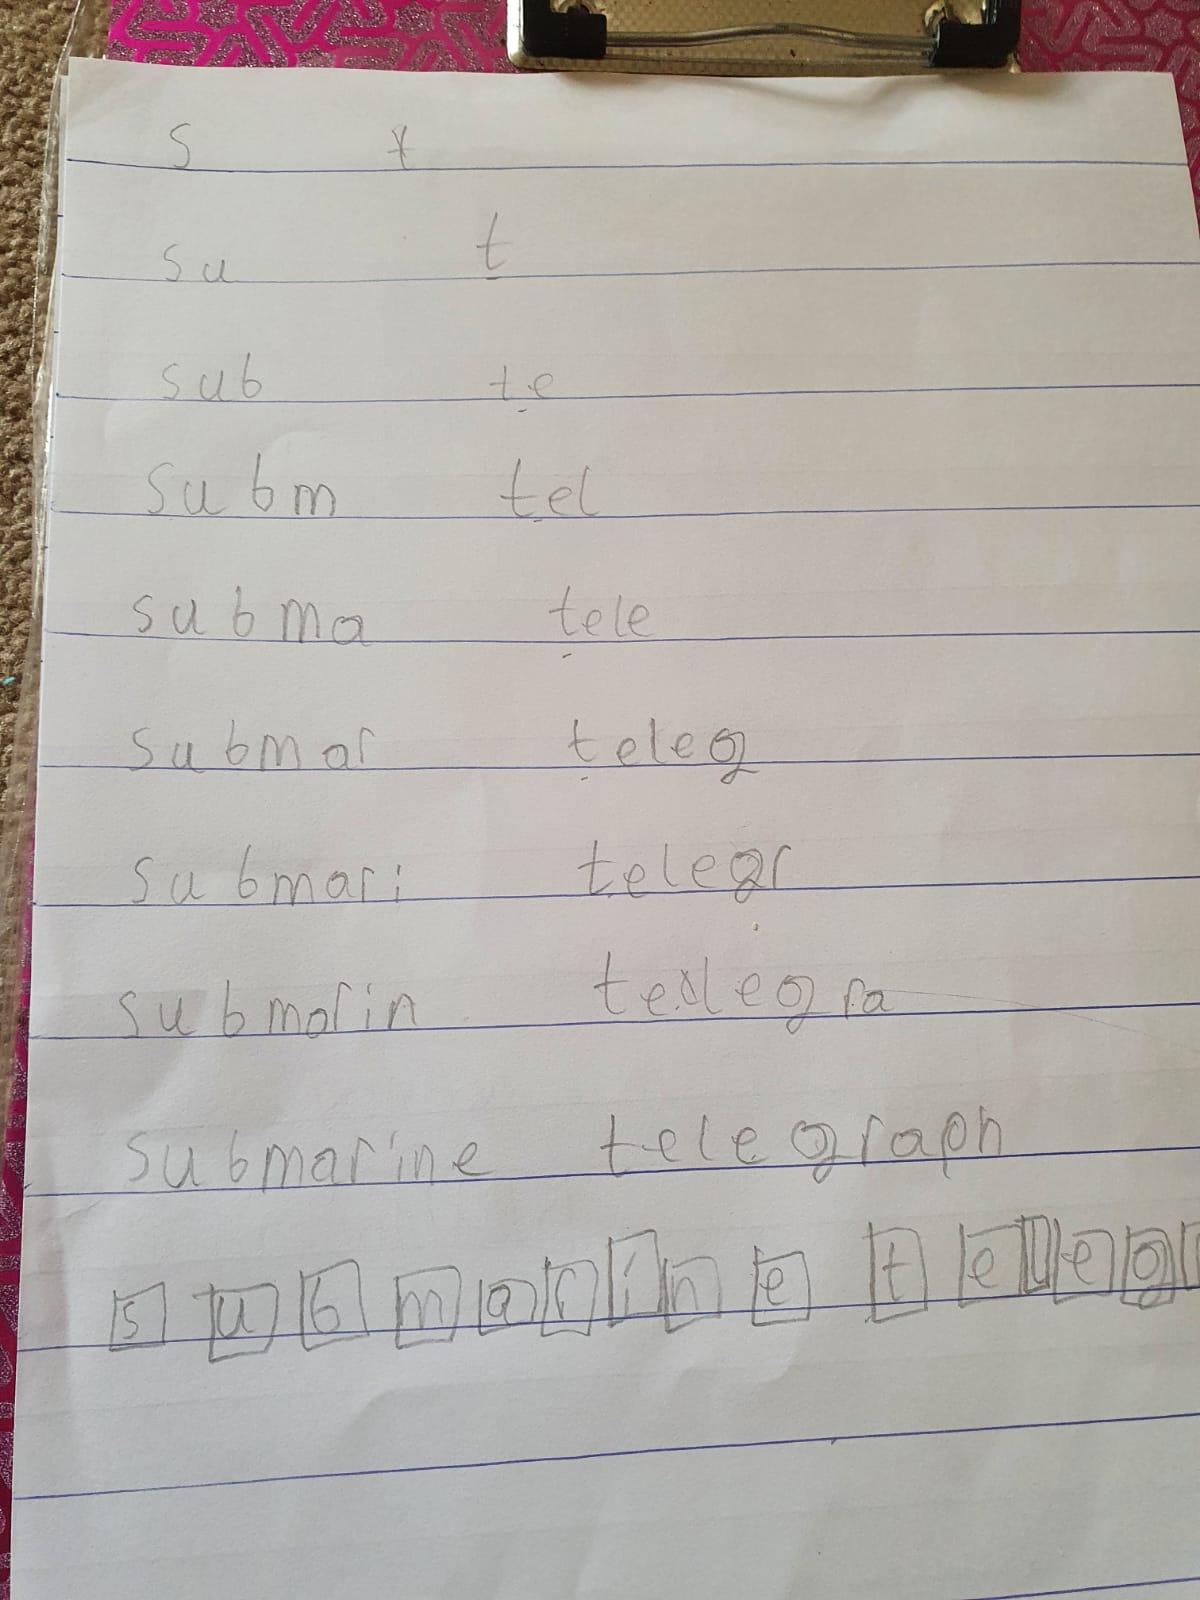 s t
su t
sub te
subm tel
subma tele
submar teleg
submari telegr
submarin telegra
submarine telegraph
s u b m a r i n e t e l e g